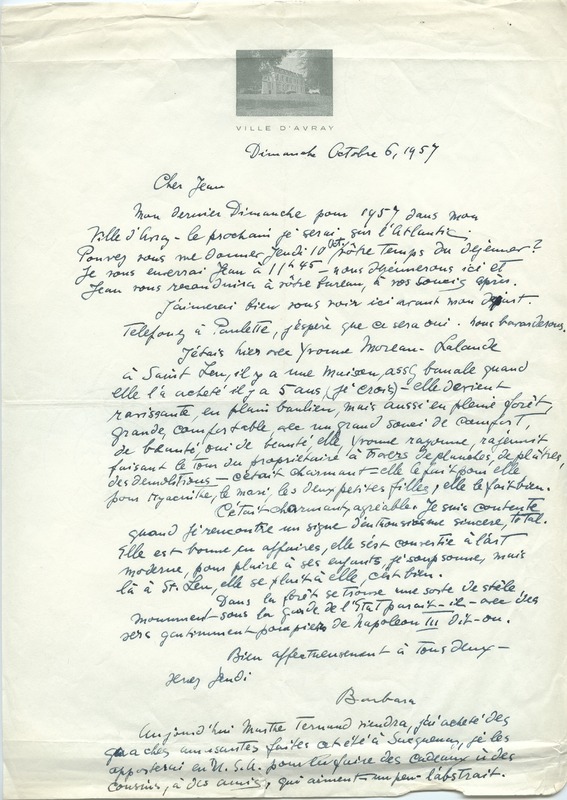 VILLE D'AVRAY
Dimanche Octobre 6, 1957
Cher Jean
Mon dernier Dimanche pour 1957 dans mon
Ville d'Avray - le prochain je serai sur l'Atlantic.
Pouvez vous me donner Jeudi 10 Oct. vôtre temps du dejeuner?
Je vous enverrai Jean à 11h45 - nous déjeunerons ici et
Jean vous reconduira à vôtre bureau, à vos soucis après.
J'aimerai bien vous voir ici avant mon départ
Telefonez à Paulette, j'éspère que ce sera oui. nous bavarderons.
J'étais hier avec Yvonne Moreau-Lalande
à Saint Leu, il y a une maison, assez banale quand
elle l'a acheté il y a 5 ans (je crois) - elle devient
ravissante, en plein banlieu, mais aussi en pleine forêt,
grande, comfortable, avec un grand souci de comfort,
de beauté, oui de beauté elle Yvonne rayonne, rajeunit
faisant le tour du propriétaire à travers de planches, de plâtres,
des demolitions - c'était charmant = elle le fait pour elle
pour Hyacinthe, le mari, les deux petites filles, elle le fait bien.
C'était charmant, agréable. Je suis contente
quand je rencontre un signe d'enthousiasme sincère, total.
Elle est bonne en affaires, elle s'est convertie à l'art
moderne, pour plaire à ses enfants je soupsonne, mais
là à St. Leu, elle se plait à elle, c'est bien.
Dans la forêt se trouve une sorte de stèle,
monument - sous la garde de l'Etat parait-il - avec des
vers pompiers de Napoleon III dit-on.
Bien affectueusement à tous deux -
Venez Jeudi
Barbara
Aujourd'hui viendra, j'ai acheté des
gouaches amusantes faites cet été à je les
apporterai en U.S.A. pour en faire des cadeaux à des
cousins, à des amis, qui aiment un peu l'abstrait.